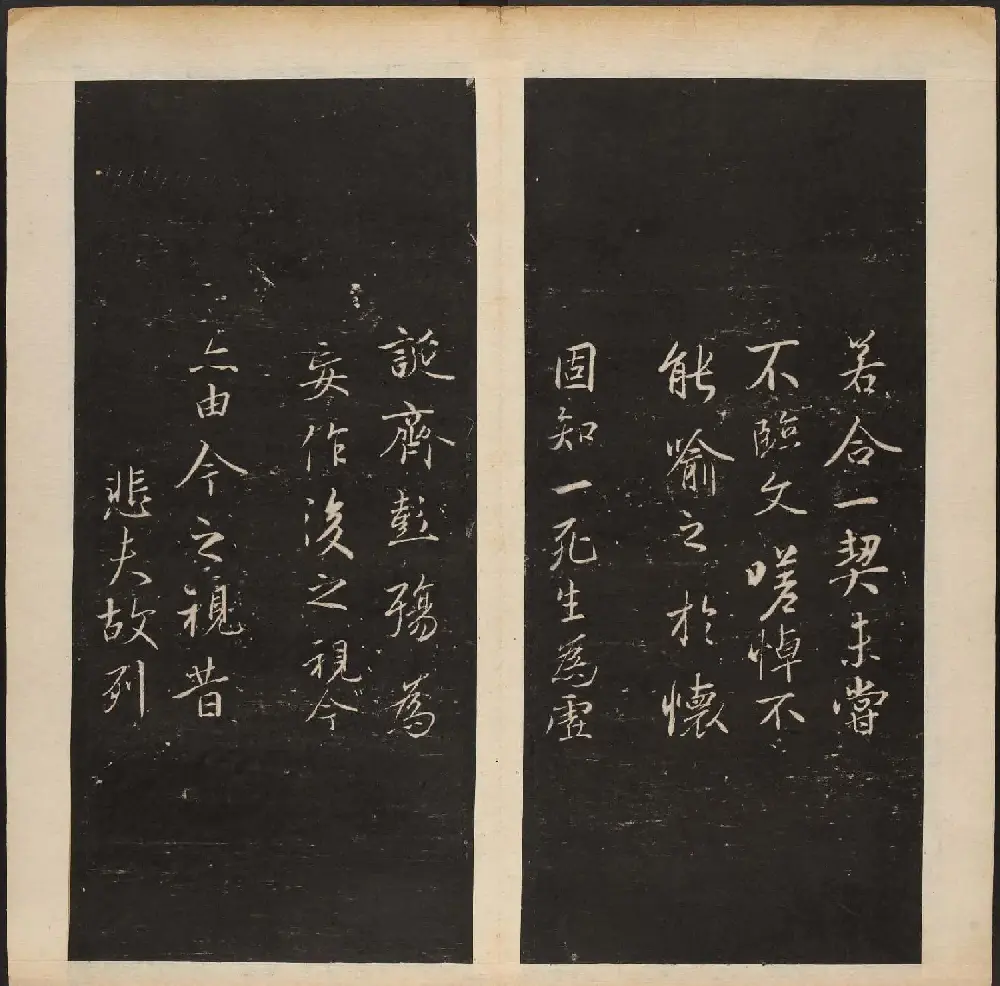 若合一契未嘗
不臨文嗟悼不
能喻之於懷
固知一死生為虛
誕齊彭殤為
妄作後之視今
亦由今之視昔
悲夫故列